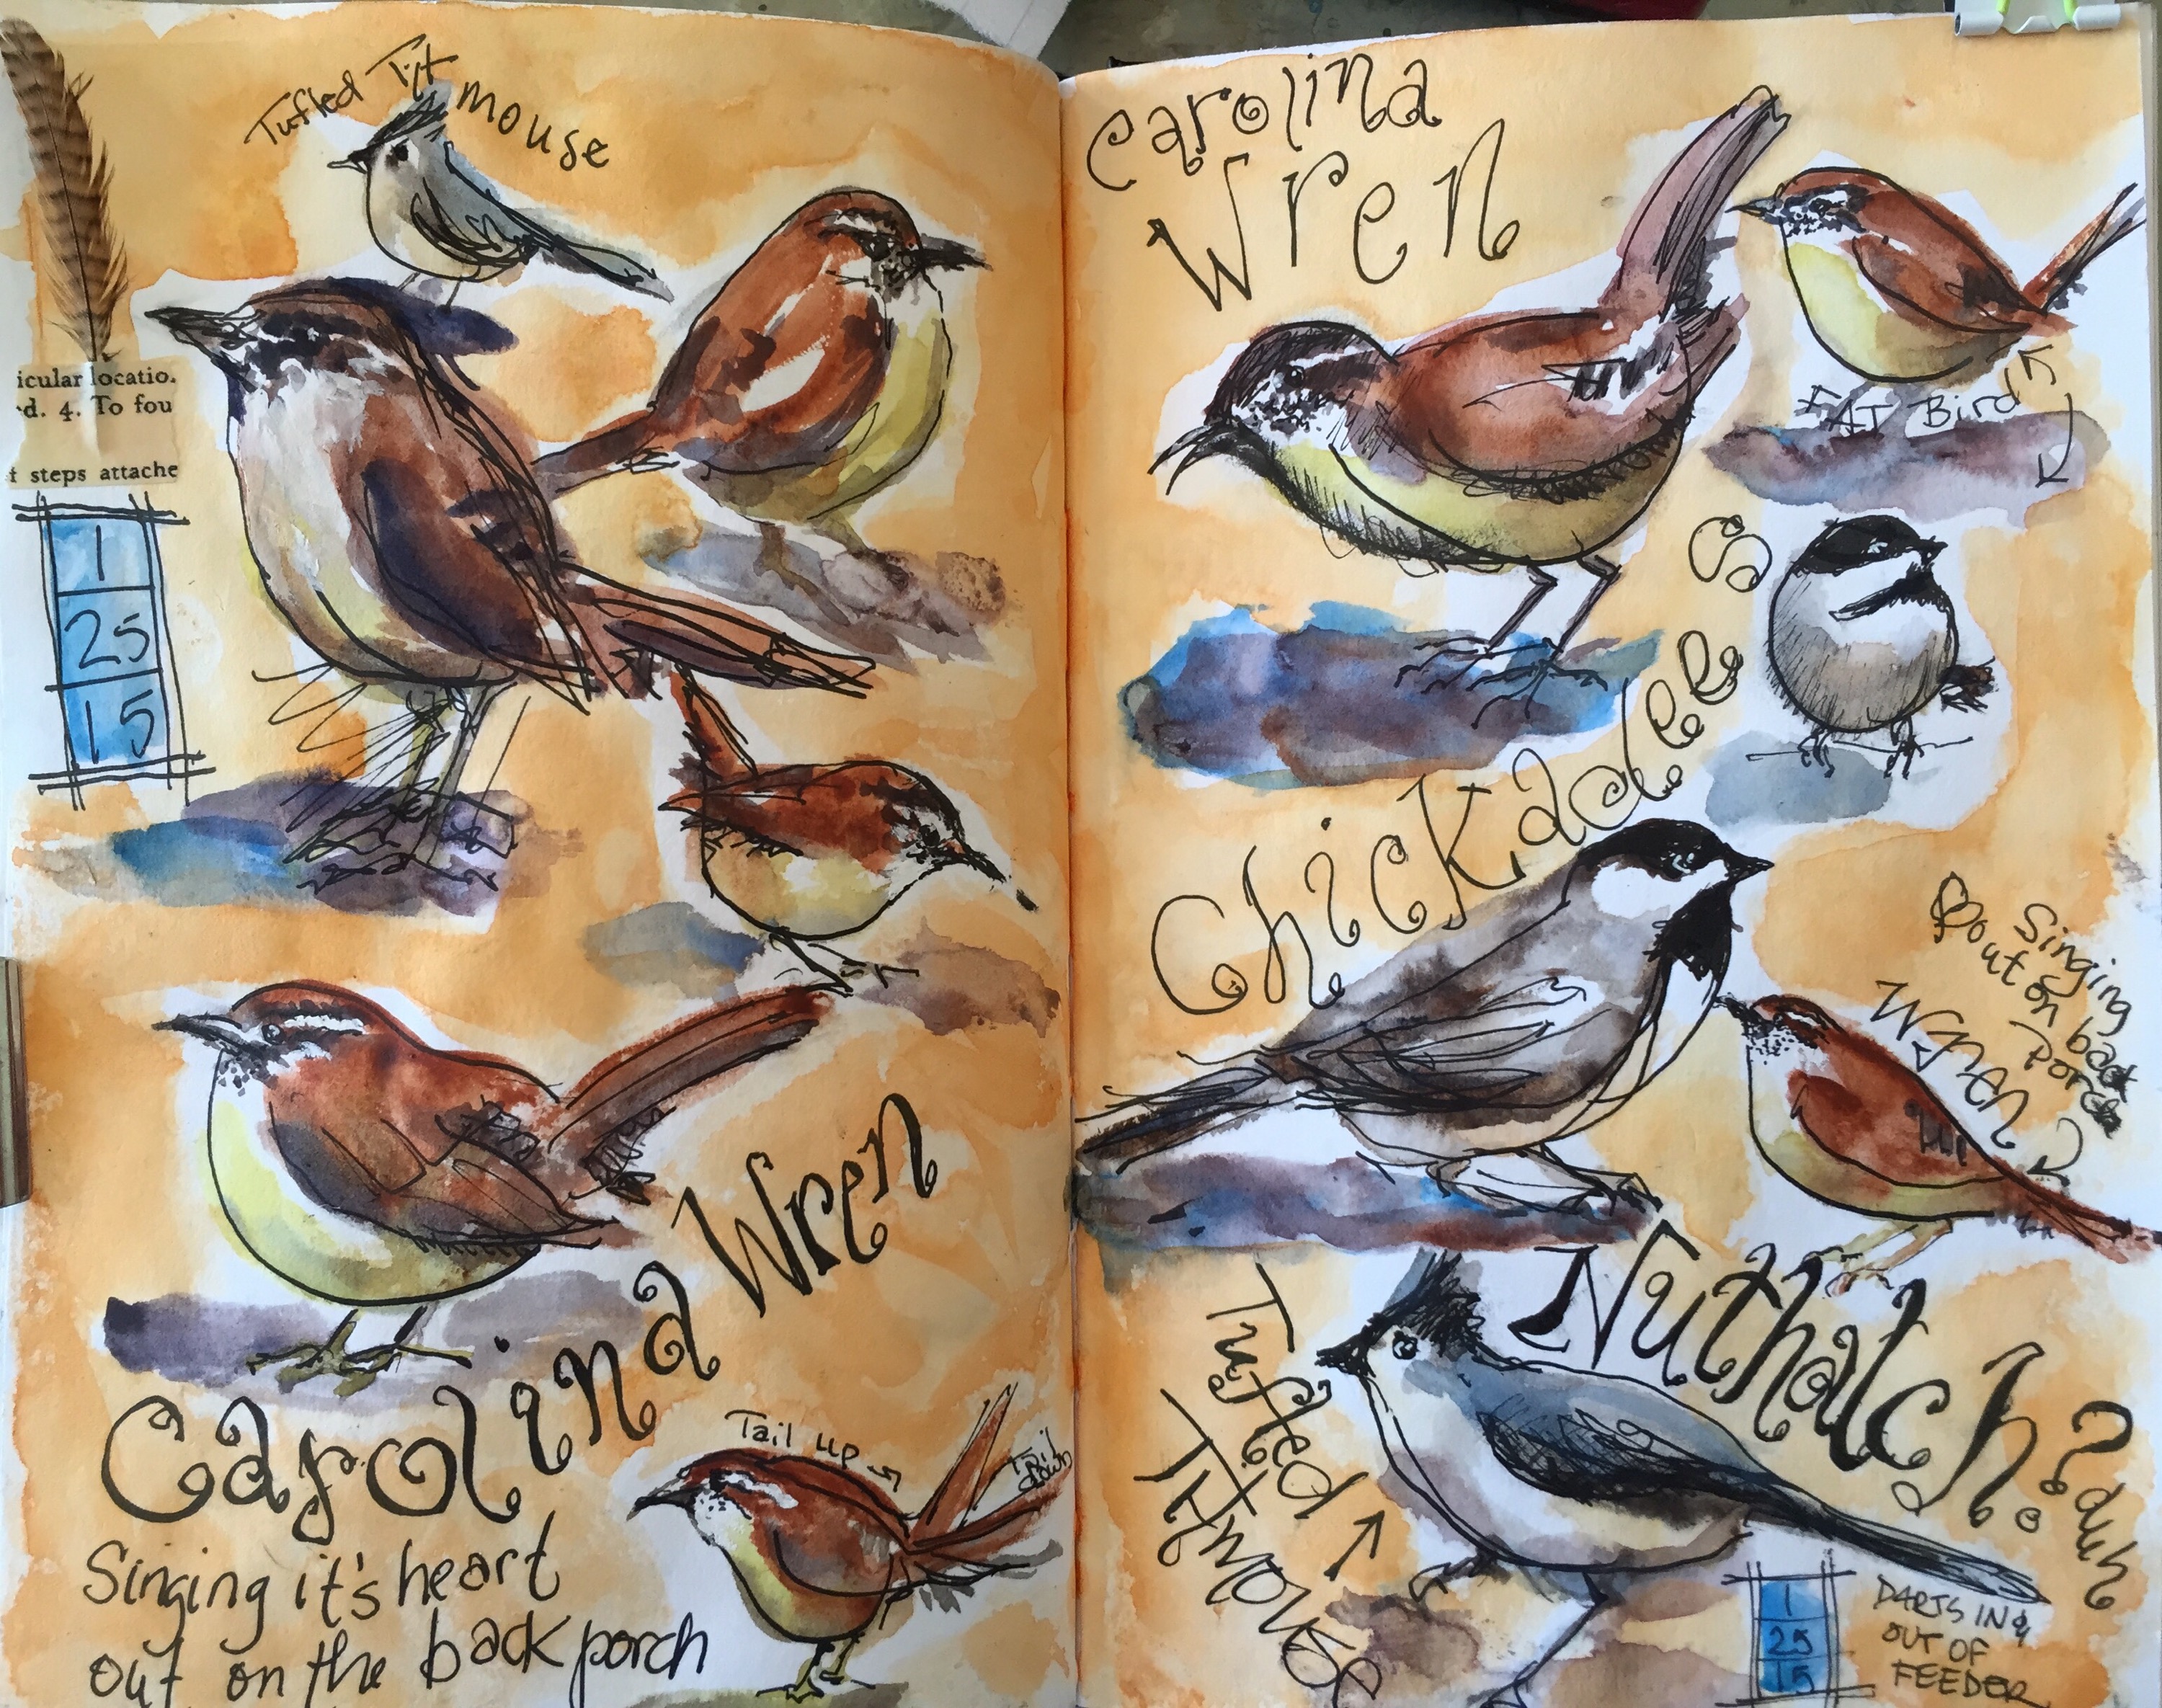 Tufted Tit mouse
icular locatio.
d. 4. To fou
f steps attache
1
25
15
Carolina Wren
Singing it's heart
out on the back porch
Tail up
Tail
down
Carolina
Wren
FAT Bird
Chickadees
Singing
out on
back
Porch
Wren
Nuthatch? duh
Tufted
Titmouse
1
25
15
DARTS IN &
OUT OF
FEEDER